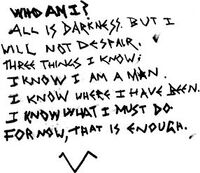 WHO AM I?
ALL IS DARKNESS. BUT I
WILL NOT DESPAIR.
THREE THINGS I KNOW:
I KNOW I AM A MAN.
I KNOW WHERE I HAVE BEEN.
I KNOW WHAT I MUST DO.
FOR NOW, THAT IS ENOUGH.